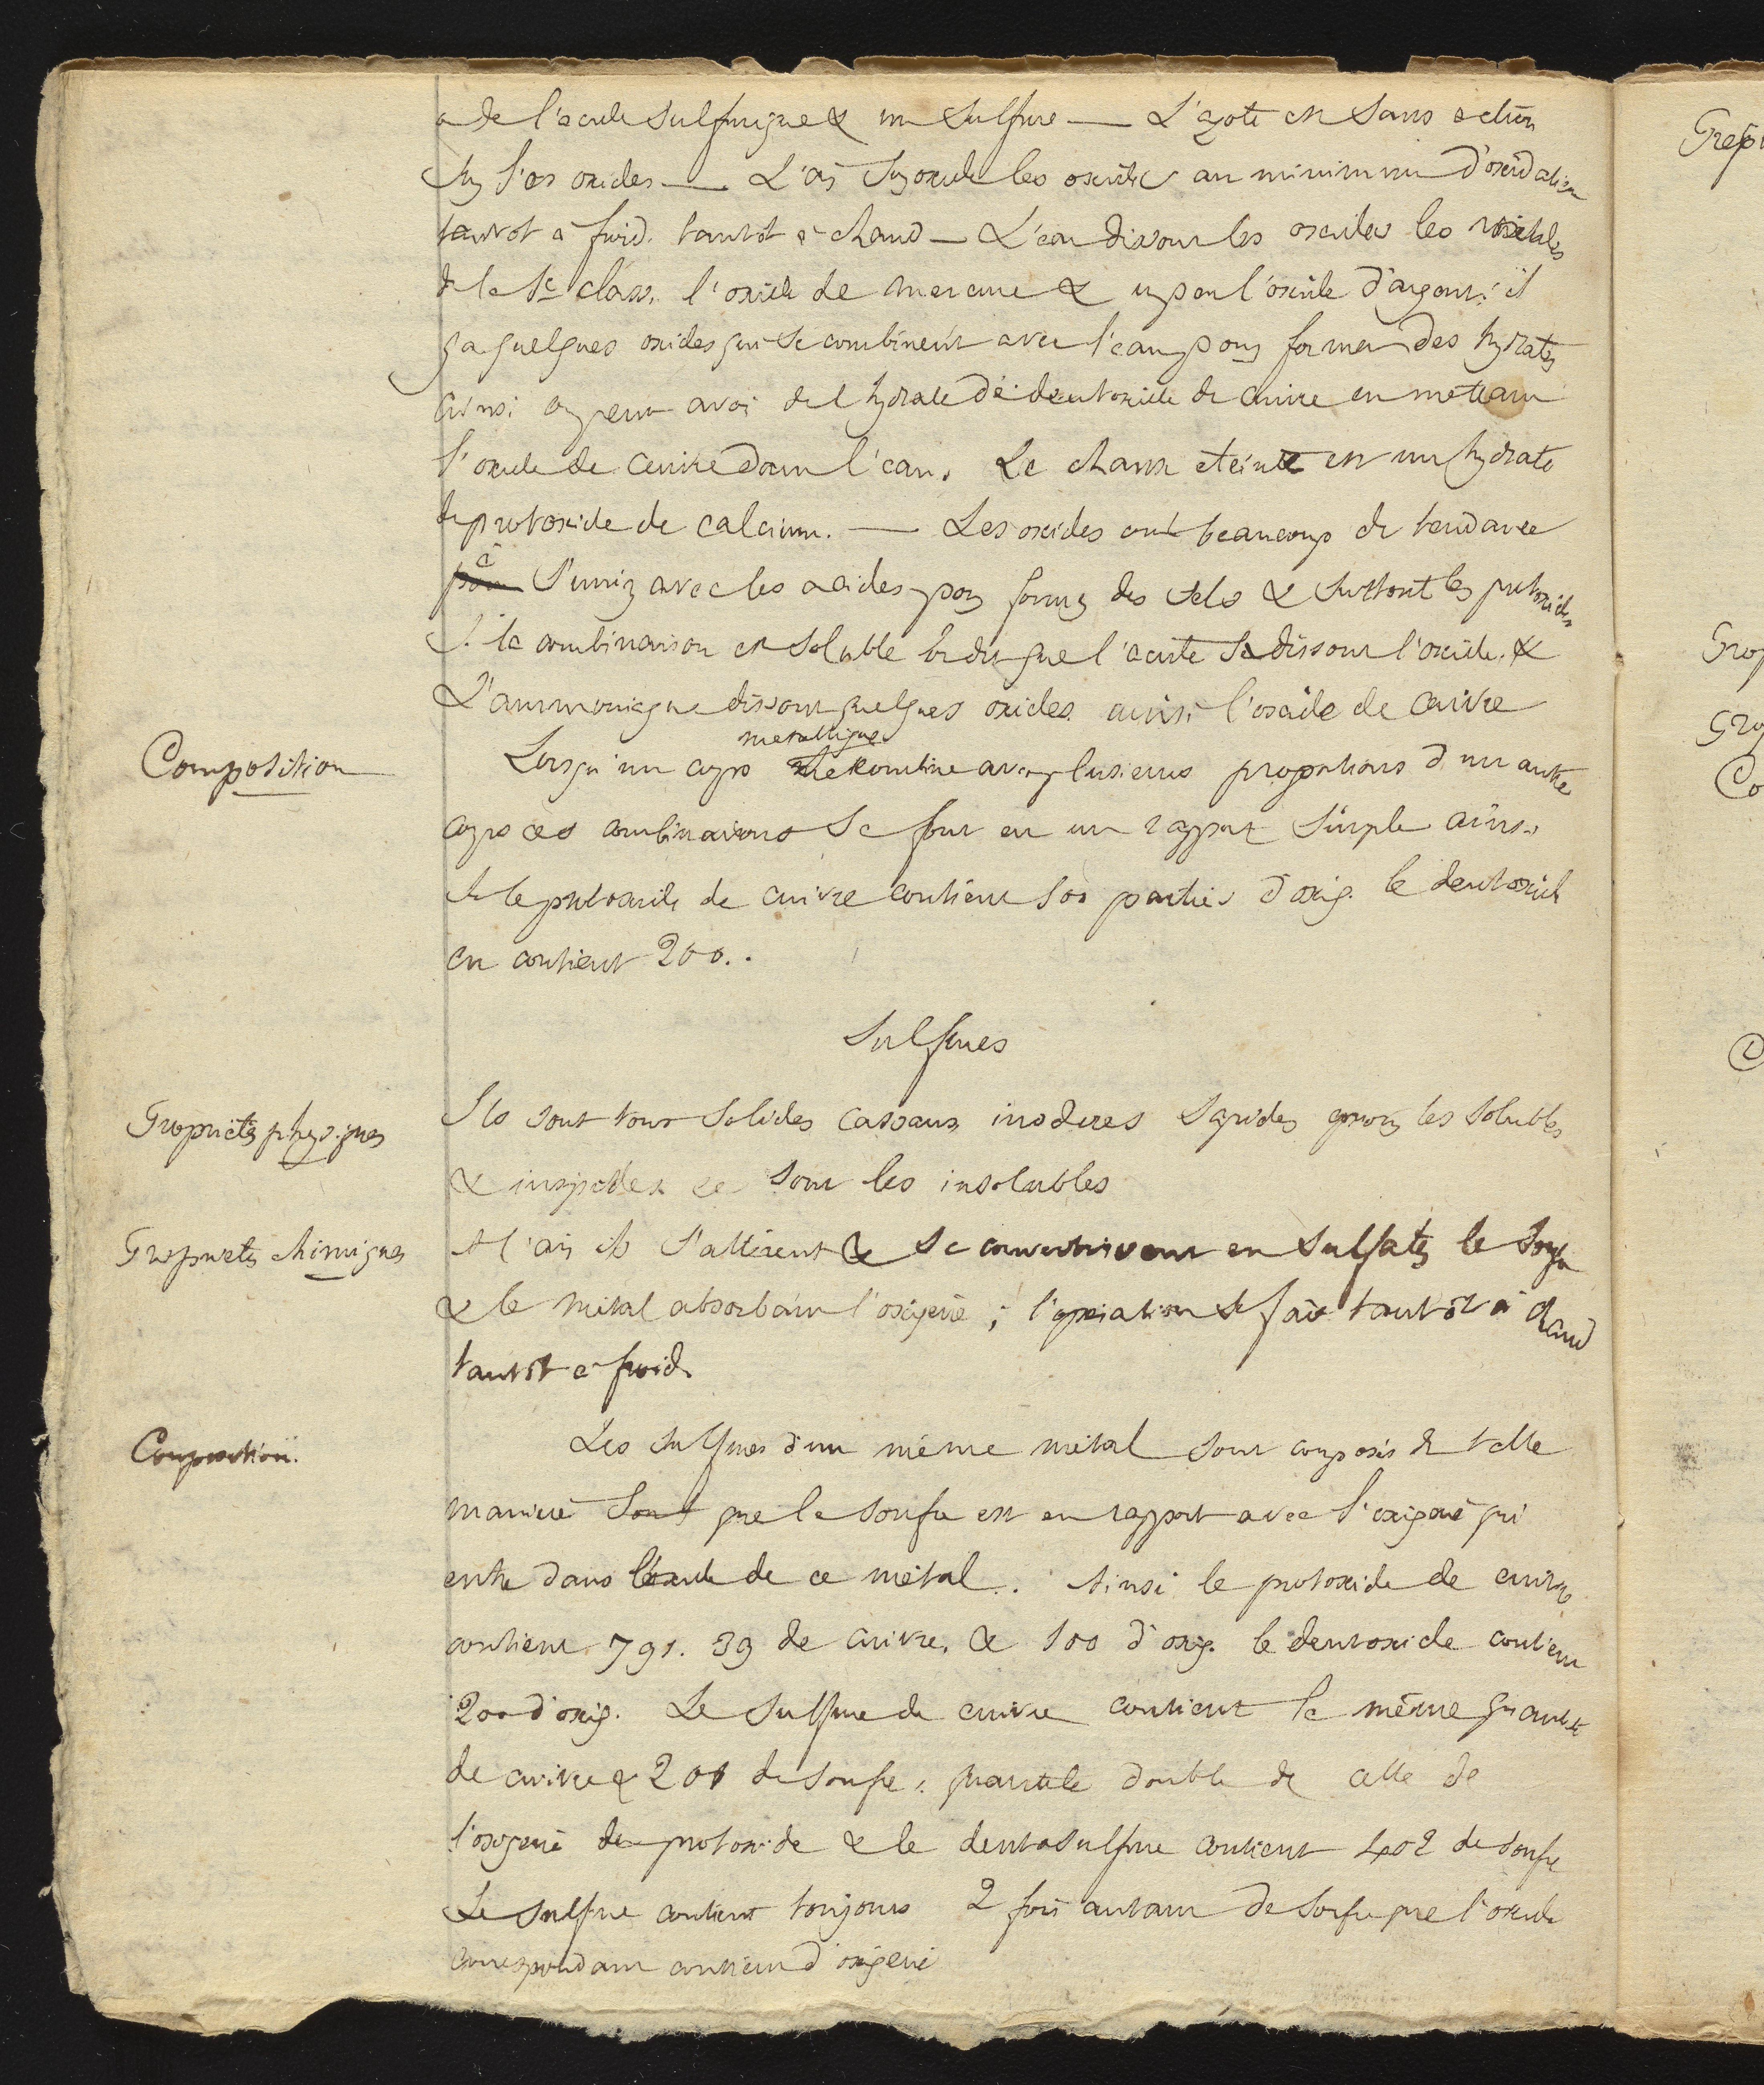 a de l'acide sulfurique & un sulfure — L'azote est sans action
sur l'es oxides — L'air suroxide les oxides au minimum d'oxidation
tantot à froid. tantot à chaud — L'eau dissout les oxides les
de la 1e class. l'oxide de mercure & un peu l'oxide d'argent. il
y a quelques oxides qui se combinent avec l'eau pour former des hydrates
ainsi on peut avoir de l'hydrate de deutoxide de cuivre en mettant
l'oxide de cuivre dans l'eau. La chaux eteinte est un hydrate
de protoxide de calcium. — Les oxides ont beaucoup de tendance
à s'unir avec les acides pour former des sels & surtout les protoxides
Si la combinaison est soluble on dit que l'acide dissout l'oxide. &
L'ammoniaque dissout quelques oxides ainsi l'oxide de cuivre
Composition
Lorsqu'un corps metallique se combine avec plusieurs proportions d'un autre
corps ces combinaisons se font en un rapport simple ainsi
si le protoxide de cuivre contient 100 parties d'oxig. le deutoxide
en contient 200..
Sulfures
Propriétés physiques
Ils sont tous solides cassans inodores sapides les solubles
& insipides ce sont les insolubles
Propriétés chimiques
A l'air ils s'altèrent & se convertissent en sulfates le
& le métal absorbant l'oxigène ; l'operation se fait tantôt à chaud
tantôt a froid.
Composition.
Les sulfures d'un même métal sont composés de telle
manière que le soufre est en rapport avec l'oxigène qui
entre dans l'oxide de ce métal.. Ainsi le protoxide de cuivre
contient 791. 39 de cuivre. & 100 d'oxig. le deutoxide contient
200 d'oxig. Le sulfure de cuivre contient la même quantité
de cuivre & 201 de soufre : quantité double de celle de
l'oxigène du protoxide & le deutosulfure contient 402 de soufre
Le sulfure contient toujours 2 fois autant de soufre que l'oxide
correspondant contient d'oxigène